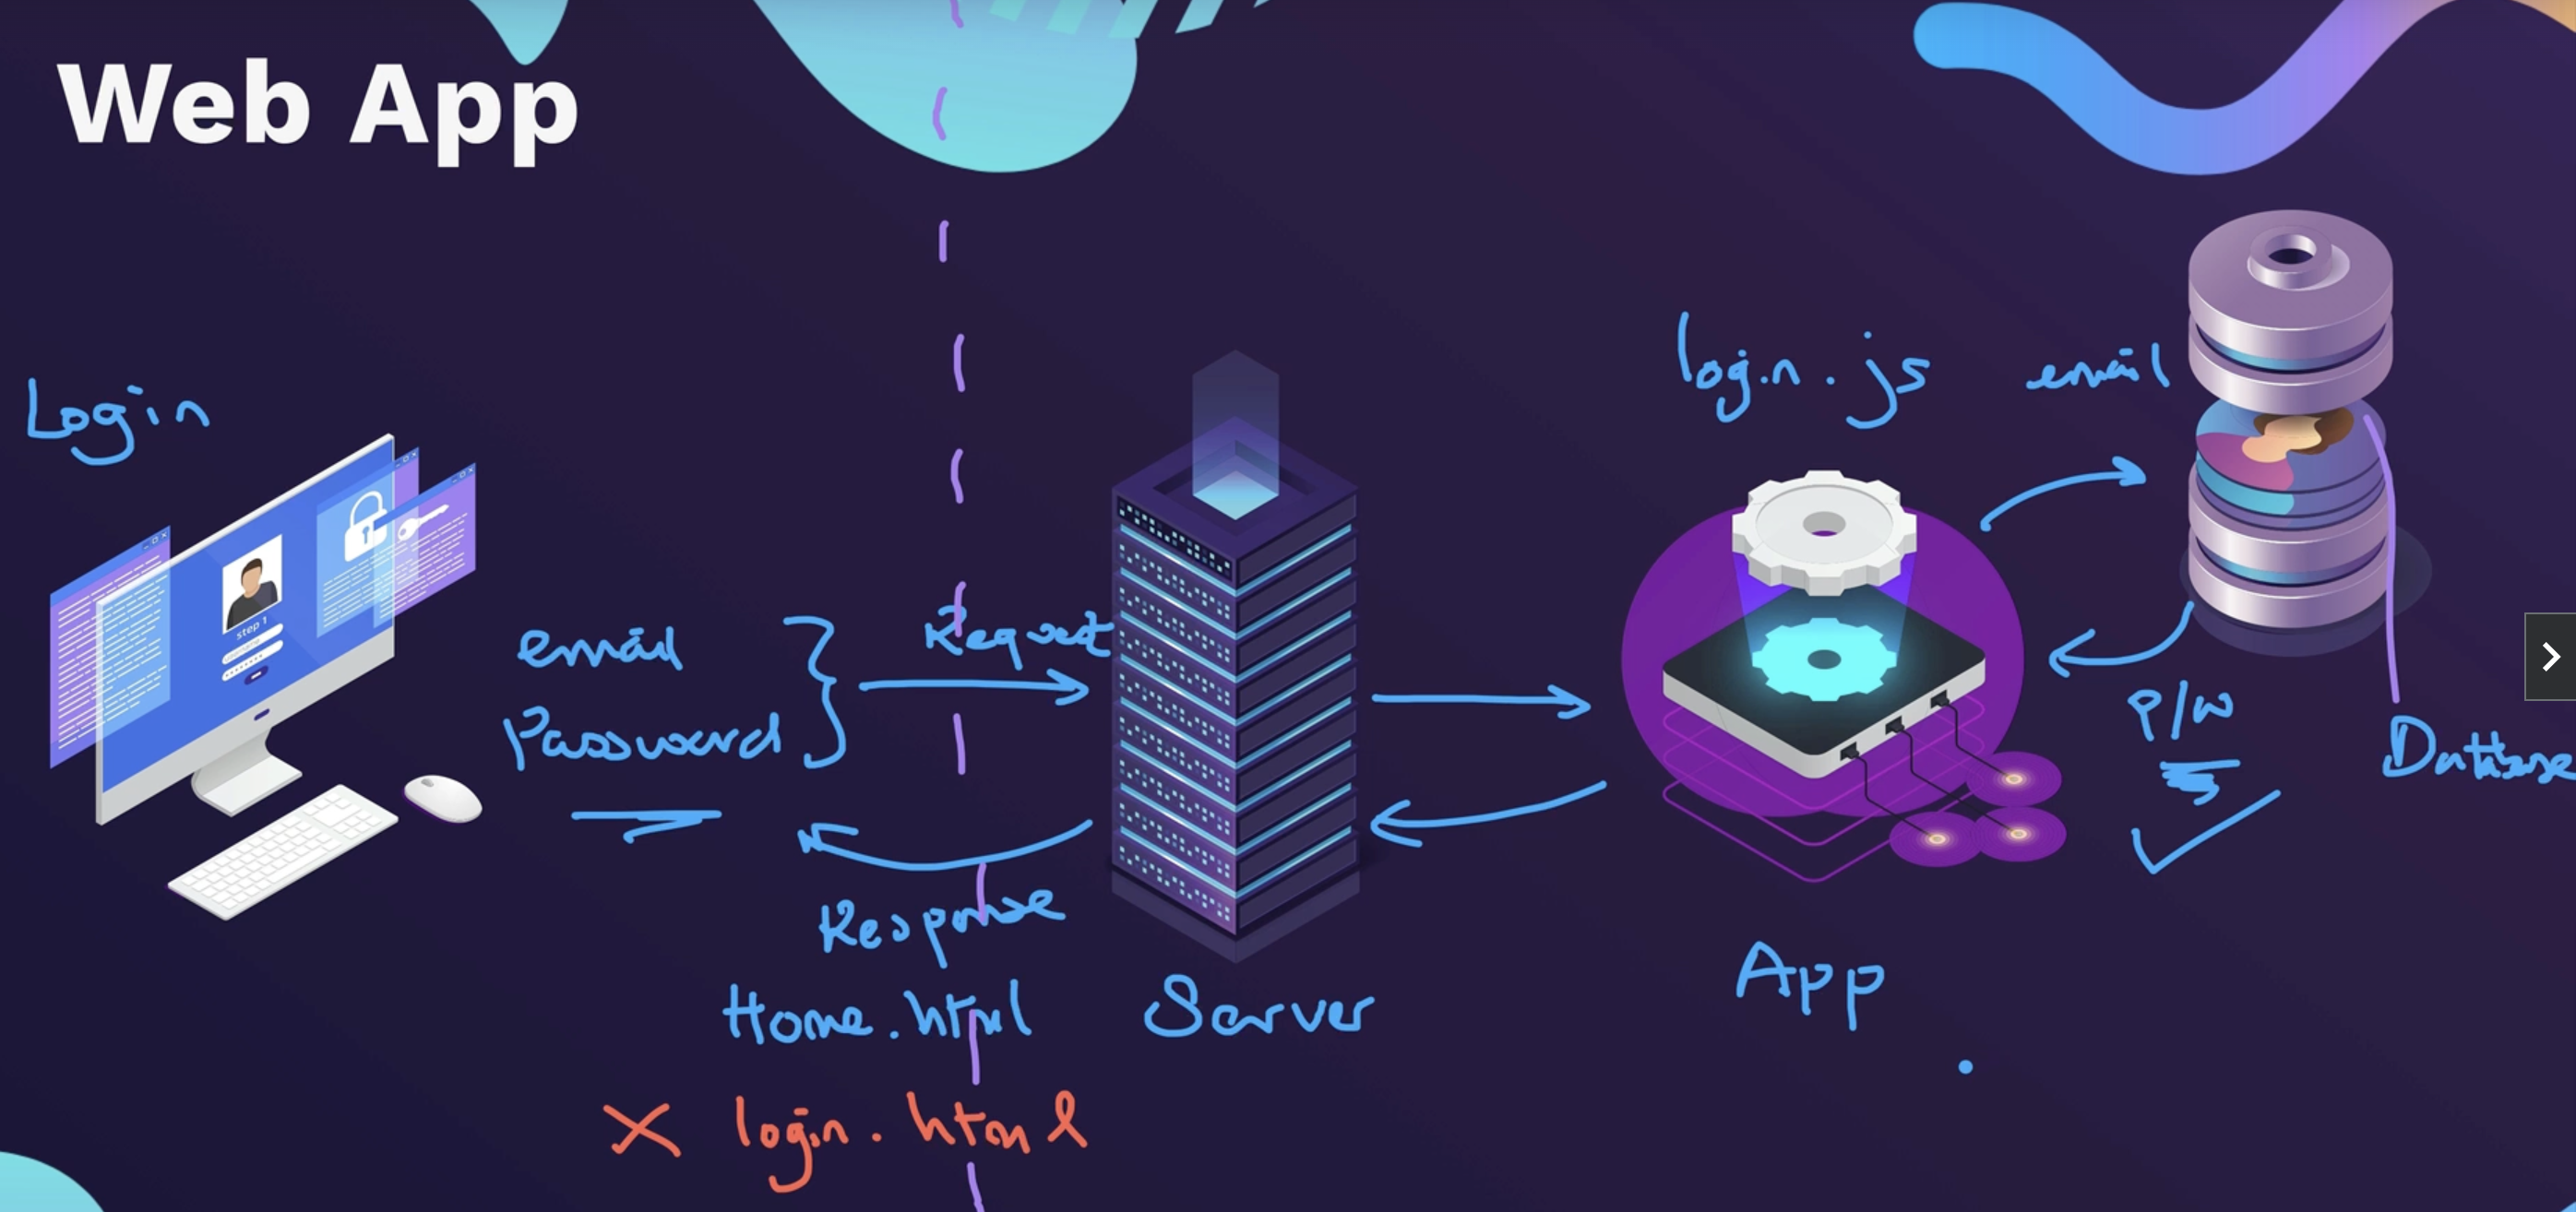 Web App
Login
step 1
email
Password
Request
Response
Home.html
X login.html
Server
login.js
email
P/W
Database
App